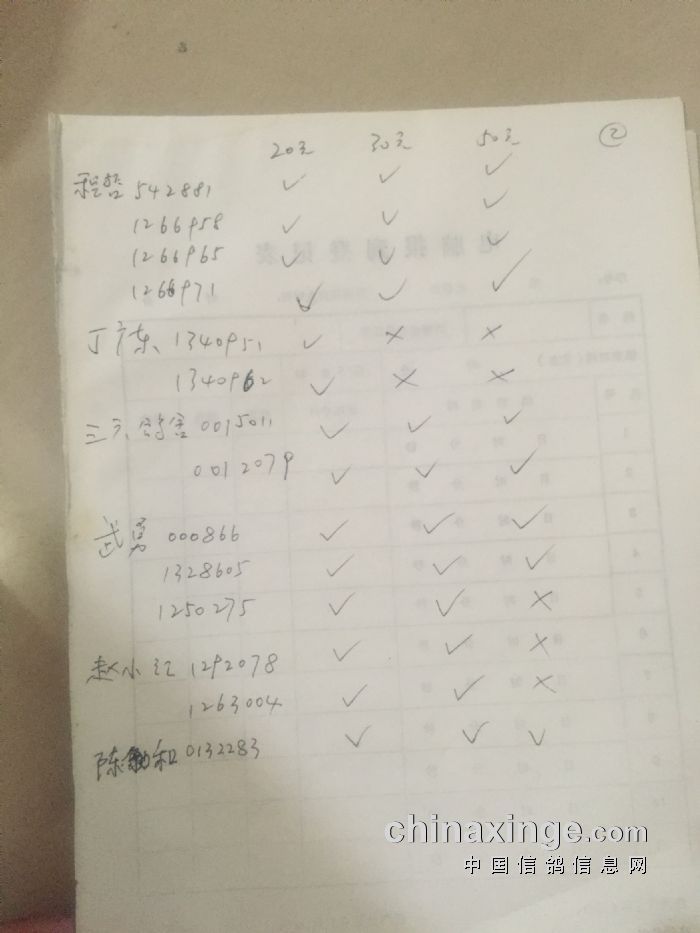 20元 30元 50元 ②
程哲 542881 ✓ ✓ ✓
1266958 ✓ ✓ ✓
1266965 ✓ ✓ ✓
1266971 ✓ ✓ ✓
丁广东 1340951 ✓ × ×
1340962 ✓ × ×
三六鸽舍 0015011 ✓ ✓ ✓
0012079 ✓ ✓ ✓
武勇 000866 ✓ ✓ ✓
1328605 ✓ ✓ ✓
1250275 ✓ ✓ ×
赵小红 1292078 ✓ ✓ ×
1263004 ✓ ✓ ×
陈勤和 0132283 ✓ ✓ ✓
chinaxinge.com
中国信鸽信息网